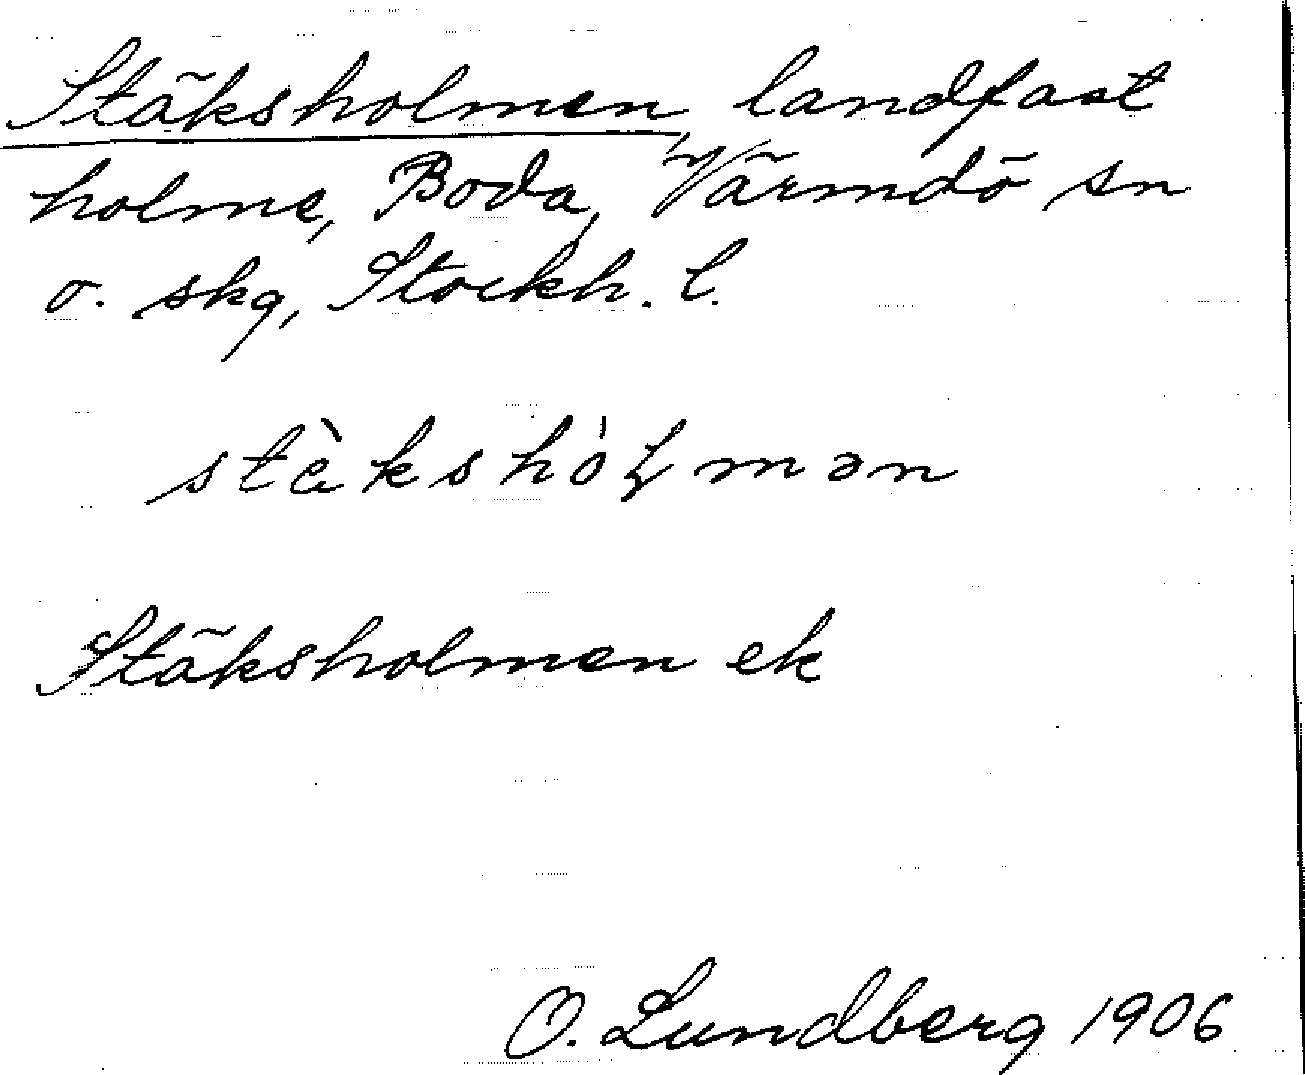 Stäksholmen, landfast
holme, Boda, Värmdö sn
o. skg, Stockh. l.
stὲkshòɫmən
Stäksholmen ek
O. Lundberg 1906